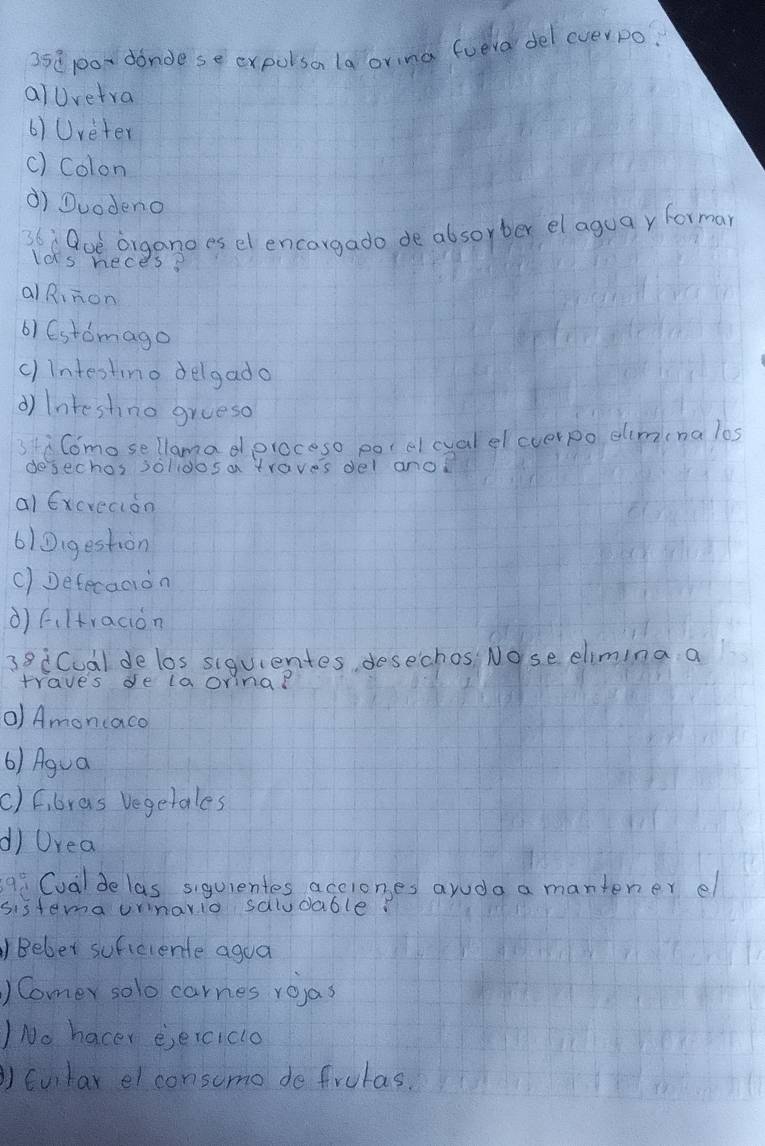 35¿ por dónde se expulsa la orina fuera del cuerpo?
a) Uretra
b) Uréter
c) Colon
d) Duodeno
36¿ Qué órgano es el encargado de absorber el agua y formar
las heces?
a) Riñon
b) Estómago
c) Intestino delgado
d) Intestino grueso
37¿ Cómo se llama el proceso por el cual el cuerpo elimina los
desechos sólidos a través del ano?
a) Excreción
b) Digestión
c) Defecación
d) Filtración
38¿ Cuál de los siguientes desechos No se elimina a
través de la orina?
a) Amoniaco
b) Agua
c) Fibras vegetales
d) Urea
39¿ Cuál de las siguientes acciones ayuda a mantener el
sistema urinario saludable?
) Beber suficiente agua
) Comer solo carnes rojas
) No hacer ejercicio
d) Evitar el consumo de frutas.